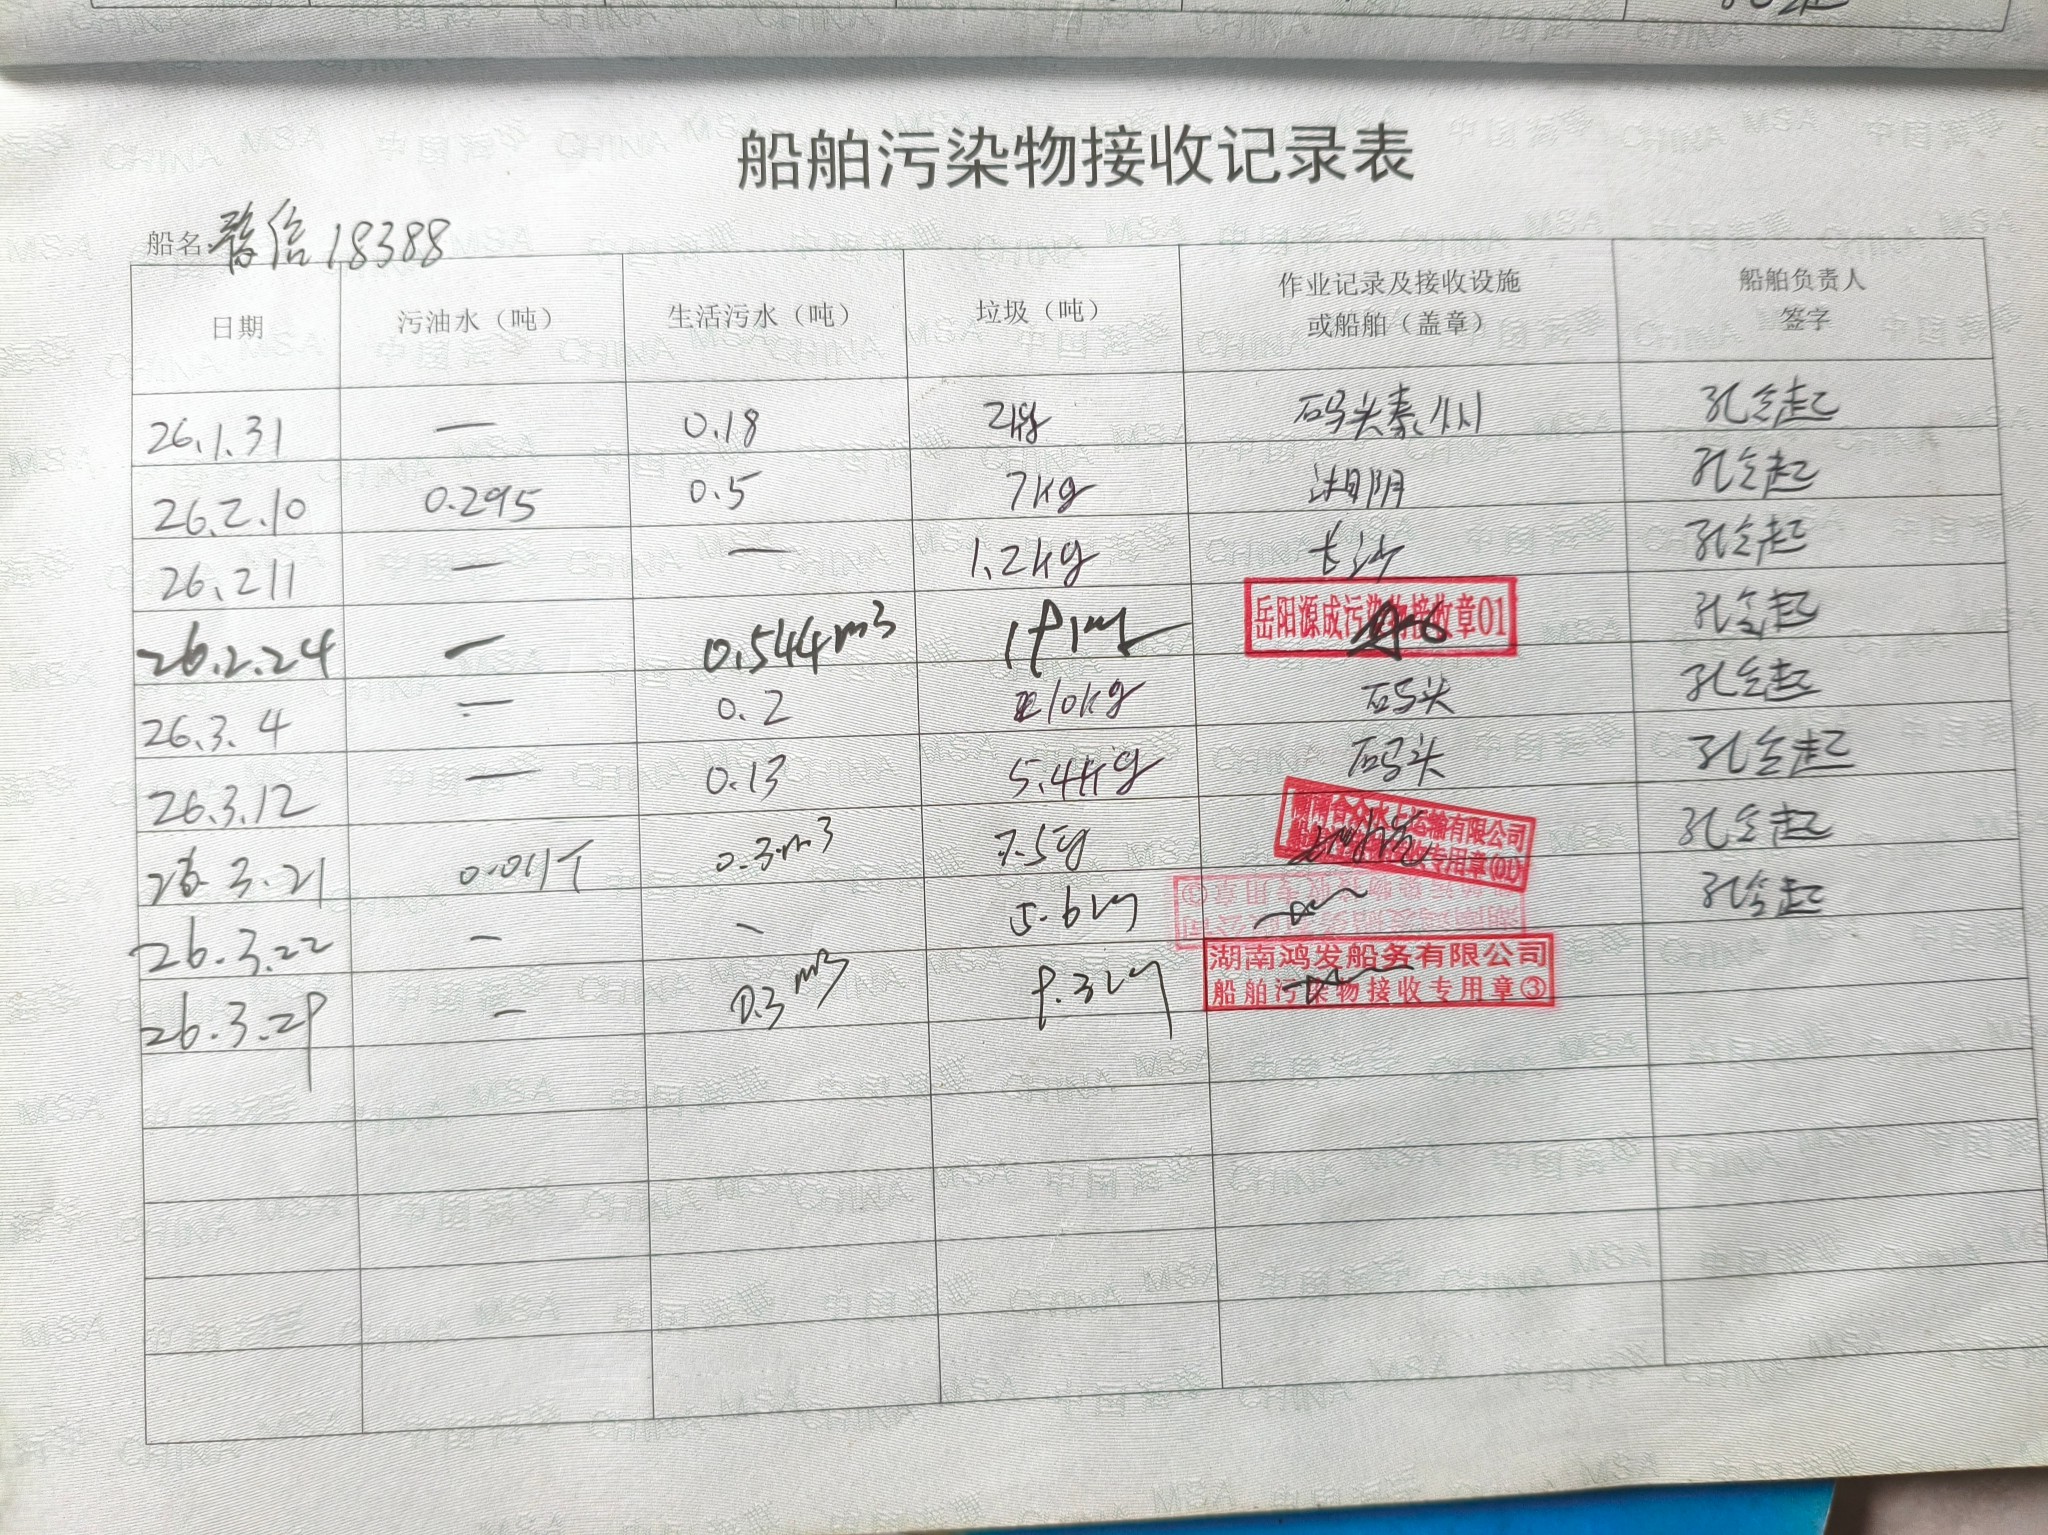 船舶污染物接收记录表
船名 信18388
日期 污油水（吨） 生活污水（吨） 垃圾（吨） 作业记录及接收设施或船舶（盖章） 船舶负责人签字
26.1.31 — 0.18 2kg 码头泰州 孔令起
26.2.10 0.295 0.5 7kg 湘阴 孔令起
26.211 — — 1.2kg 长沙 孔令起
26.2.24 — 0.544m3 岳阳源成污染物接收章01 孔令起
26.3.4 — 0.2 10kg 码头 孔令起
26.3.12 — 0.13 5.4kg 码头 孔令起
26.3.21 0.011T 0.3m3 7.5 水上运输有限公司 专用章(01) 孔令起
26.3.22 — — 5.6 孔令起
26.3.29 — 0.3m3 9.3 湖南鸿发船务有限公司
船舶污染物接收专用章③